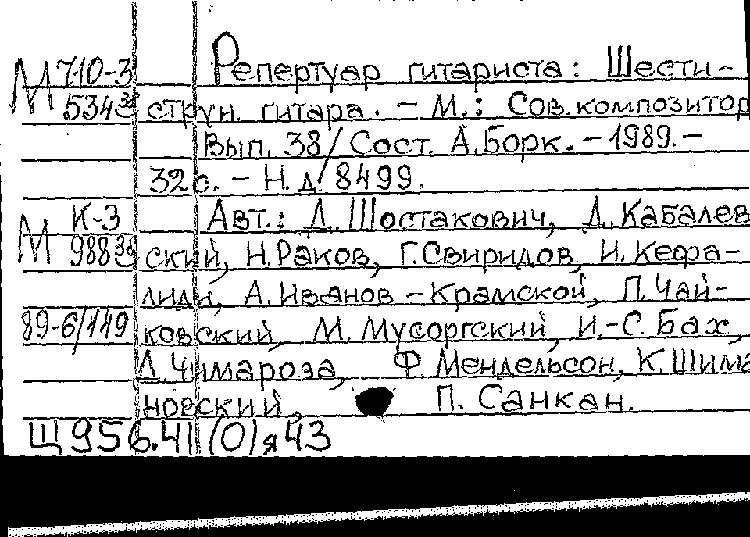 М 710-3 Репертуар гитариста: Шести-
534 38 струн. гитара. – М.: Сов. композитор
Вып. 38 / Сост. А. Борк. – 1989. –
32 с. – Н. д. 8499.
М К-3 Авт.: Д. Шостакович, Д. Кабалев
988 38 ский, Н. Раков, Г. Свиридов, И. Кефа-
лиди, А. Иванов-Крамской, П. Чай-
89-6/149 ковский, М. Мусоргский, И.-С. Бах,
Д. Чимароза, Ф. Мендельсон, К. Шима
новский, П. Санкан.
Щ 956.41(0)я43